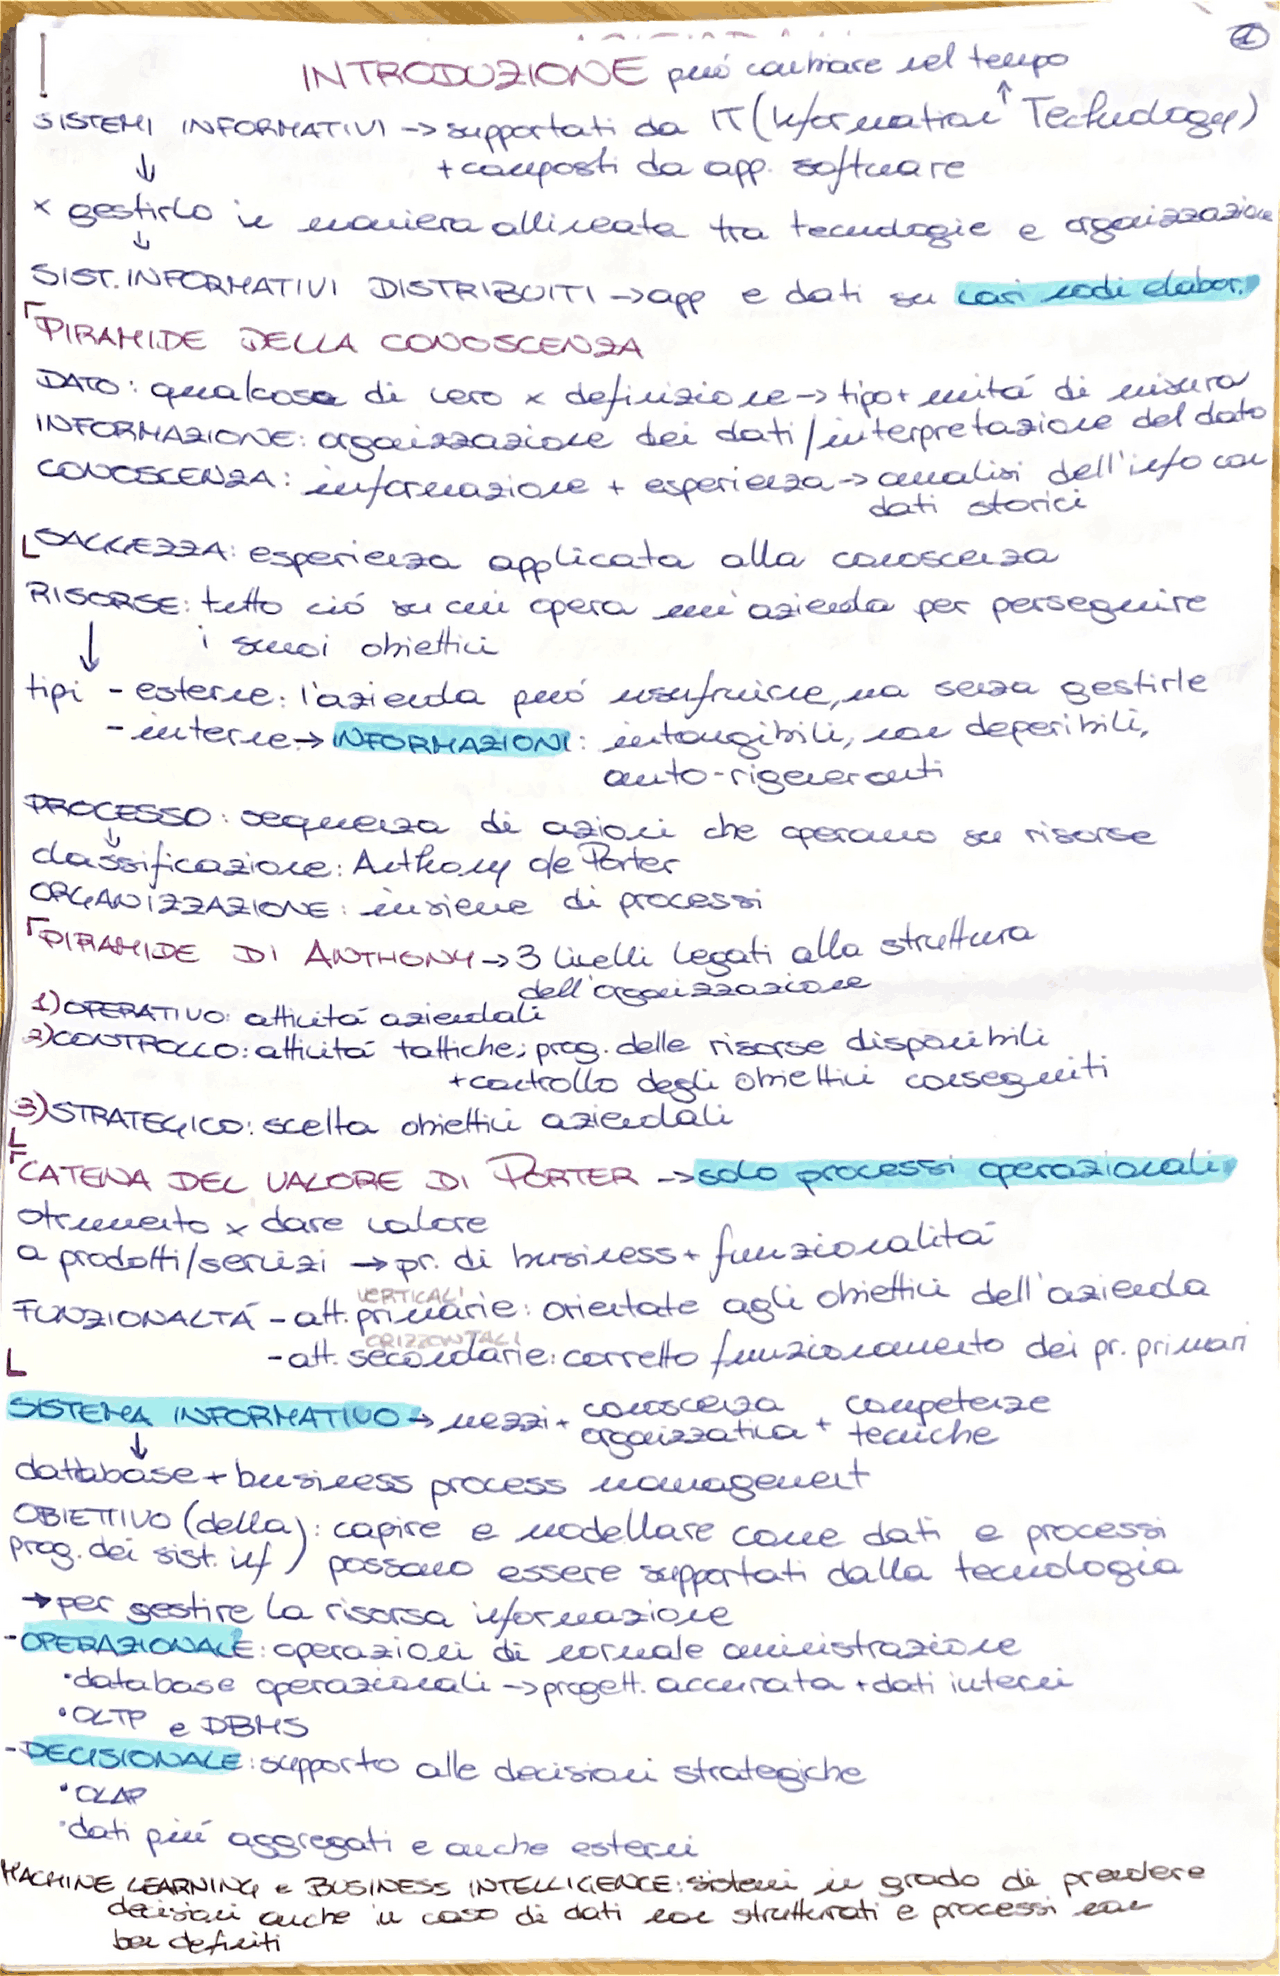 1
INTRODUZIONE può cambiare nel tempo
↑
SISTEMI INFORMATIVI → supportati da IT (Information Technology)
↓ + composti da app. software
x gestirlo in maniera allineata tra tecnologie e organizzazione
↓
SIST. INFORMATIVI DISTRIBUITI → app e dati su vari nodi elabor.
PIRAMIDE DELLA CONOSCENZA
DATO: qualcosa di vero x definizione → tipo + unitá di misura
INFORMAZIONE: organizzazione dei dati/interpretazione del dato
CONOSCENZA: informazione + esperienza → analisi dell'info con
dati storici
SAGGEZZA: esperienza applicata alla conoscenza
RISORSE: tutto ció su cui opera un'azienda per perseguire
↓ i suoi obiettivi
tipi - esterne: l'azienda puó usufruirne, ma senza gestirle
- interne → INFORMAZIONI: intangibili, non deperibili,
auto-rigeneranti
PROCESSO: sequenza di azioni che operano su risorse
↓
classificazione: Anthony e Porter
ORGANIZZAZIONE: insieme di processi
PIRAMIDE DI ANTHONY → 3 livelli legati alla struttura
dell'organizzazione
1) OPERATIVO: attivitá aziendali
2) CONTROLLO: attivitá tattiche; prog. delle risorse disponibili
+ controllo degli obiettivi conseguiti
3) STRATEGICO: scelta obiettivi aziendali
CATENA DEL VALORE DI PORTER → solo processi operazionali
strumento x dare valore
a prodotti/servizi → pr. di business + funzionalitá
VERTICALI
FUNZIONALTÁ - att. primarie: orientate agli obiettivi dell'azienda
ORIZZONTALI
- att. secondarie: corretto funzionamento dei pr. primari
SISTEMA INFORMATIVO → mezzi + conoscenza organizzativa + competenze tecniche
↓
database + business process management
OBIETTIVO (della prog. dei sist. inf): capire e modellare come dati e processi
possano essere supportati dalla tecnologia
→ per gestire la risorsa informazione
- OPERAZIONALE: operazioni di normale amministrazione
• database operazionali → progett. accurata + dati interni
• OLTP e DBMS
- DECISIONALE: supporto alle decisioni strategiche
• OLAP
• dati piú aggregati e anche esterni
MACHINE LEARNING e BUSINESS INTELLIGENCE: sistemi in grado di prendere
decisioni anche in caso di dati non strutturati e processi non
ben definiti